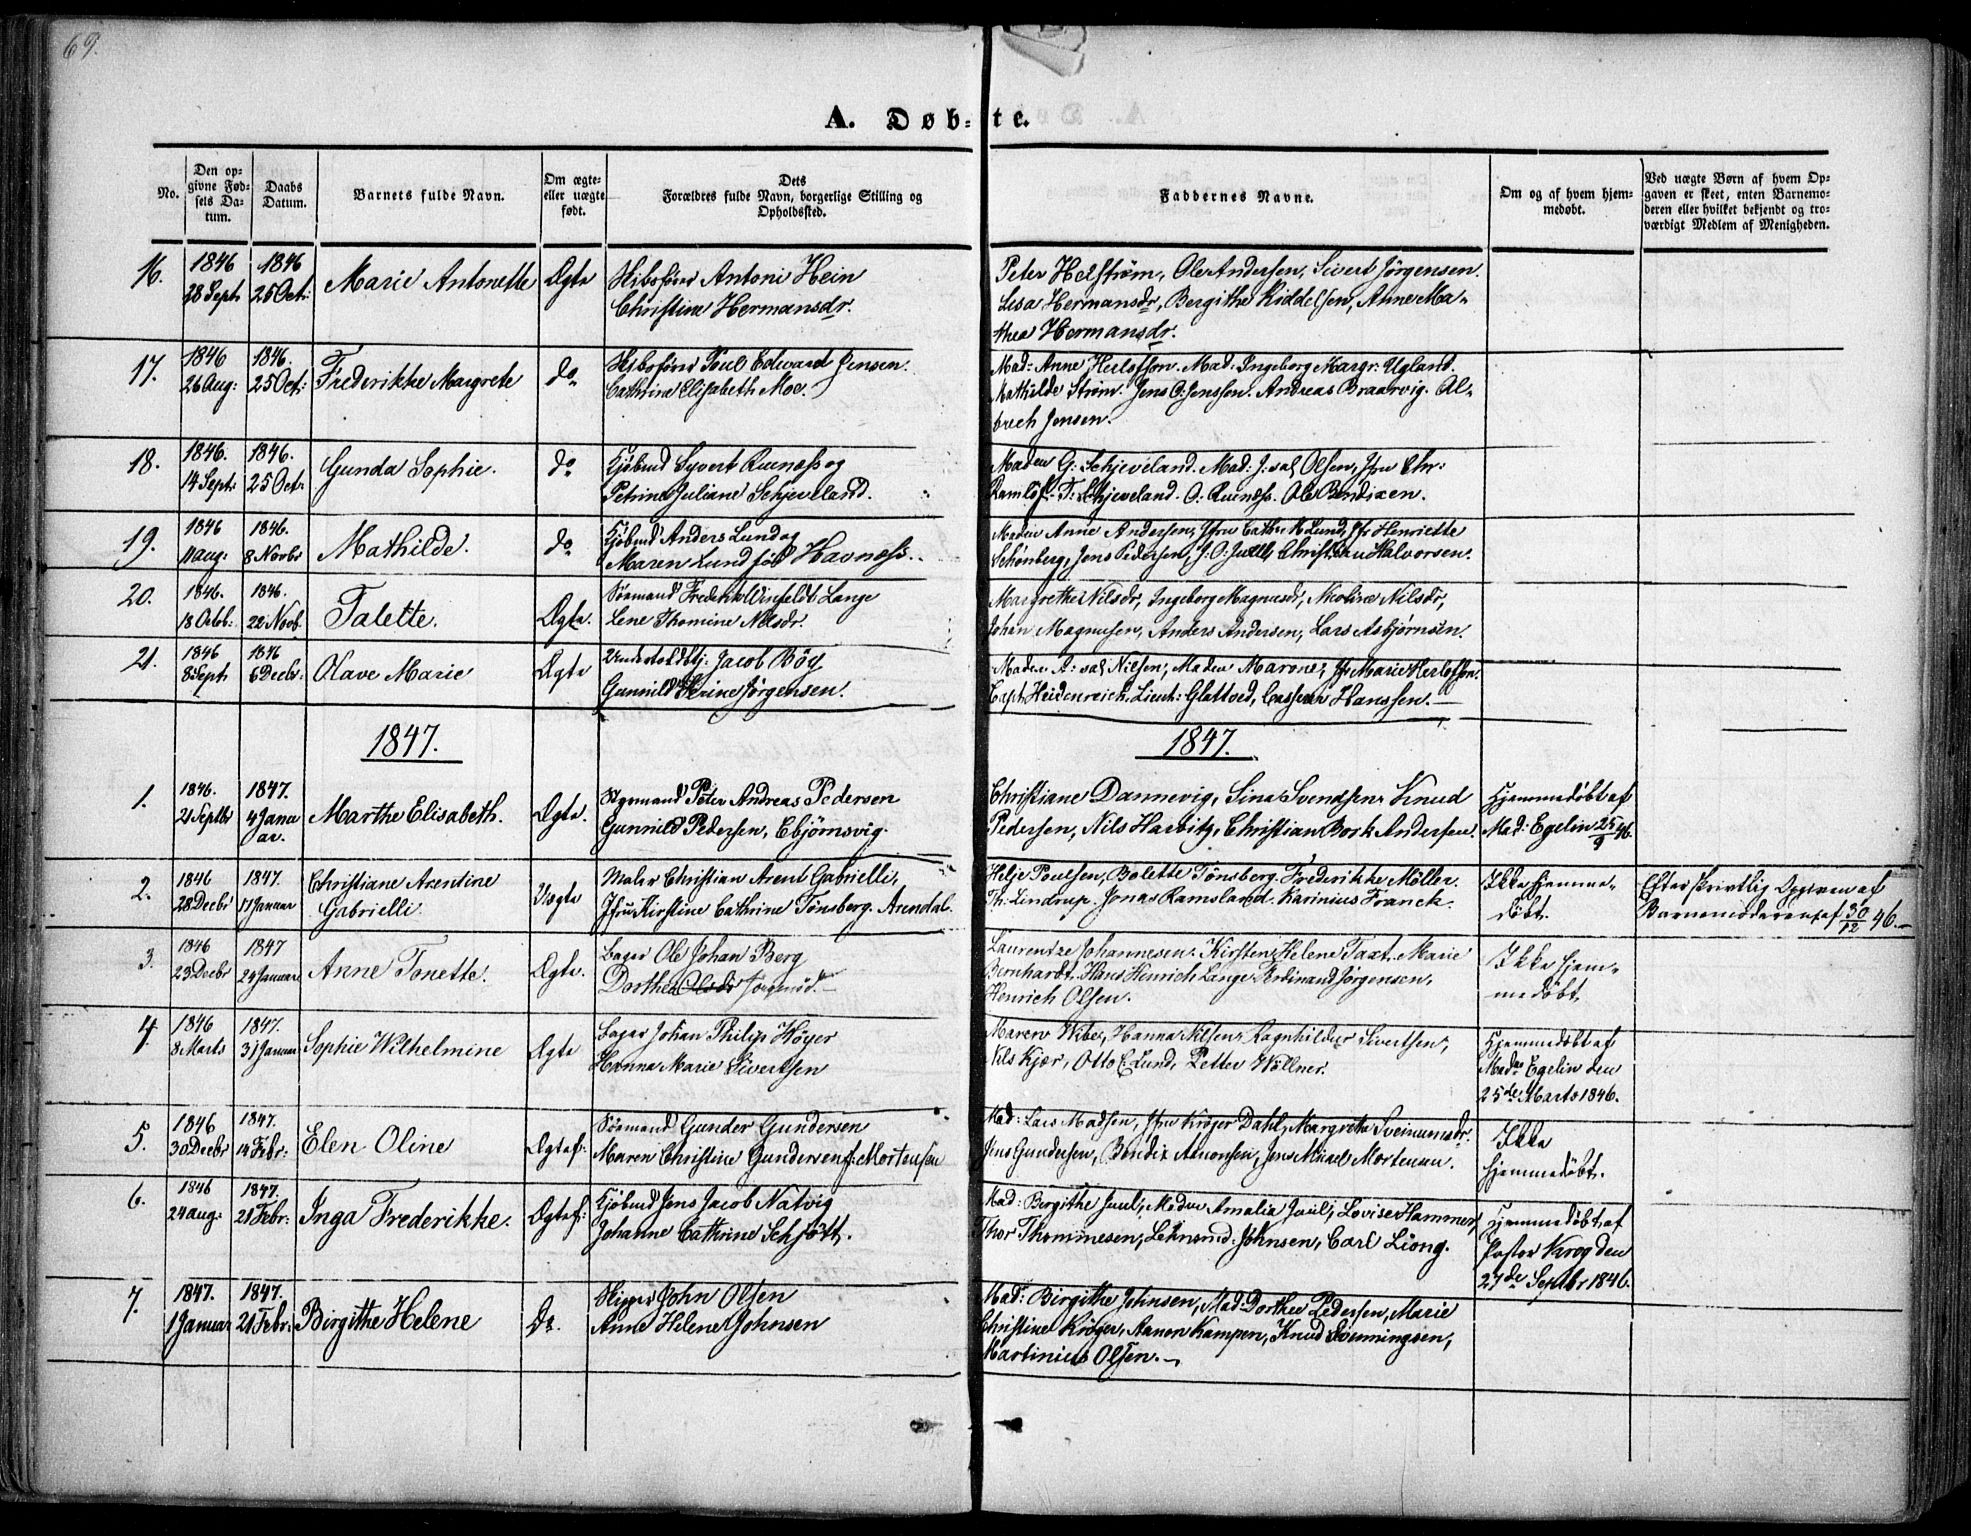 69.
A. Døb=te.
No.
Den op-
givne Fød-
sels Da-
tum.
Daabs
Datum.
Barnets fulde Navn.
Om ægte-
eller uægte
født.
Dets
Forældres fulde Navn, borgerlige Stilling og
Opholdssted.
Faddernes Navne.
Om og af hvem hjem-
medøbt.
Ved uægte Børn af hvem Op-
gaven er skeet, enten Barnemo-
deren eller hvilket bekjendt og tro-
værdigt Medlem af Menigheden.
16.
1846
28 Sept:
1846
25 Oct:
Marie Antonette
Ægte
Skibsfører Antoni Hein
Christine Hermansdr.
Peter Helstrøm, Ole Andersen, Sivert Jörgensen.
Lisa Hermansdr, Bergithe Riddelsen, Anne Ma-
thea Hermansdr.
17.
1846
26 Aug:
1846.
25 Oct:
Frederikke Margrete
do
Skibsfører Poul Edward Jensen.
Cathrine Elisabeth Moe.
Mad: Anne Herlofson. Mad: Ingeborg Margr: Ugland.
Mathilde Strøm. Jens O: Jenssen. Andreas Braarvig. Al-
brech Jensen.
18.
1846.
14 Sept:
1846.
25 Oct:
Gunda Sophie.
do
Kjöbmd Syvert Ruenæss og
Petrine Juliane Schjeveland.
Maden G: Schjeveland. Mad: J: sal Olsen, Jfru Chr:
Ramlöf. T: Schjeveland. O: Ruenæss. Ole Bendixen.
19.
1846
11 Aug:
1846.
8 Novbr
Mathilde.
do
Kjöbmd Anders Lund og
Maren Lund föd Havnæss.
Maden Anne Andersen, Jfru Cathr: M Lund, Jfr Henriette
Schönberg, Jens Pedersen, J: O: Juell, Christian Halvorsen.
20.
1846.
18 Octob:
1846.
22 Novb.
Talette.
Ægte.
Sörmand Frederik Winfeldt Lange
Lene Thomine Nilsdr.
Margrethe Nilsdr, Ingeborg Magnusdr, Nicoline Nilsdr,
Johan Magnusen, Anders Andersen, Lars Asbjørnsen.
21.
1846
8 Sept:
1846
6 Decbr:
Olave Marie
Ægte
Jacob Bög
Gunnild Serine Jörgensen.
Maden A: sal Nilsen, Maden Marone, Jfr Marie Herlofson.
Capt: Heidenreich, Lieut: Glattved, Casserer Hanssen.
1847.
1847.
1.
1846.
21 Septbr
1847.
4 Janu
ar.
Marthe Elisabeth.
Ægte.
Styrmand Peter Andreas Pedersen
Gunnild Pedersen, Ebjörnsvig.
Christiane Dannevig, Sina Svendsen, Knud
Pedersen, Nils Harbitz, Christian Bork Andersen.
Hjemmedöbt af
Mad: Egelin 25/9 46.
2.
1846
28 Decbr
1847.
17 Januar
Christiane Arentine
Gabrielli.
Uægte
Maler Christian Arent Gabrielli,
Jfru Kirstine Cathrine Tönsberg. Arendal.
Helje Poulsen, Bolette Tönsberg. Frederikke Möller.
Th: Lindrup. Jonas Ramsland. Karinius Franck.
Ikke hjemme-
döbt.
Efter skrivtlig Opgaven af
Barnemoderen af 30/12 46.
3.
1846
23 Decbr
1847
24 Januar
Anne Tonette.
Ægte.
Bager Ole Johan Berg
Dorthea Olsdr
Laurentze Johannesen. Kirsten Helene Taxt. Marie
Bernhardt. Hans Henrich Lange. Ferdinand Jörgensen,
Henrich Olsen.
Ikke hjem-
medöbt.
4.
1846
8 Marts
1847.
31 Januar
Sophie Wilhelmine
Ægte
Bager Johan Philip Höyer
Hanna Marie Sivertsen
Maren Wibe, Hanna Nilsen, Ragnhild Sivertsen,
Nils Kjær, Otto E Lund, Petter Wöllner.
Hjemmedöbt af
Mad: Egelin den
25de Marts 1846.
5.
1846
30 Decbr
1847.
14 Febr:
Elen Oline
Ægtef:
Sörmand Gunder Gundersen
Maren Christine Gundersen f: Mortensen
Mad: Lars Madsen, Jfru Kröger Dahl, Margrethe Sveinumsdr.
Jens Gundersen, Bendix Aanonsen, Jens Mikael Mortensen.
Ikke
hjemmedöbt.
6.
1846
24 Aug:
1847.
21 Febr:
Inga Frederikke.
Ægtef:
Kjöbmd Jens Jacob Natvig
Johanne Cathrine Schjött.
Mad: Birgithe Juul, Maden Amalia Juul, Lovise Hammer,
Thor Thommesen, Lehnsmd: Johnsen, Carl Liong.
Hjemmedöbt af
Pastor Krog den
27de Septbr 1846.
7.
1847.
1 Januar
1847.
21 Febr:
Birgithe Helene
Do.
John Olsen
Anne Helene Johnsen
Mad: Birgithe Johnsen, Mad: Dorthea Pedersen, Marie
Christine Kröger, Aanon Kampen, Knud Svenningsen,
Martinius Olsen.